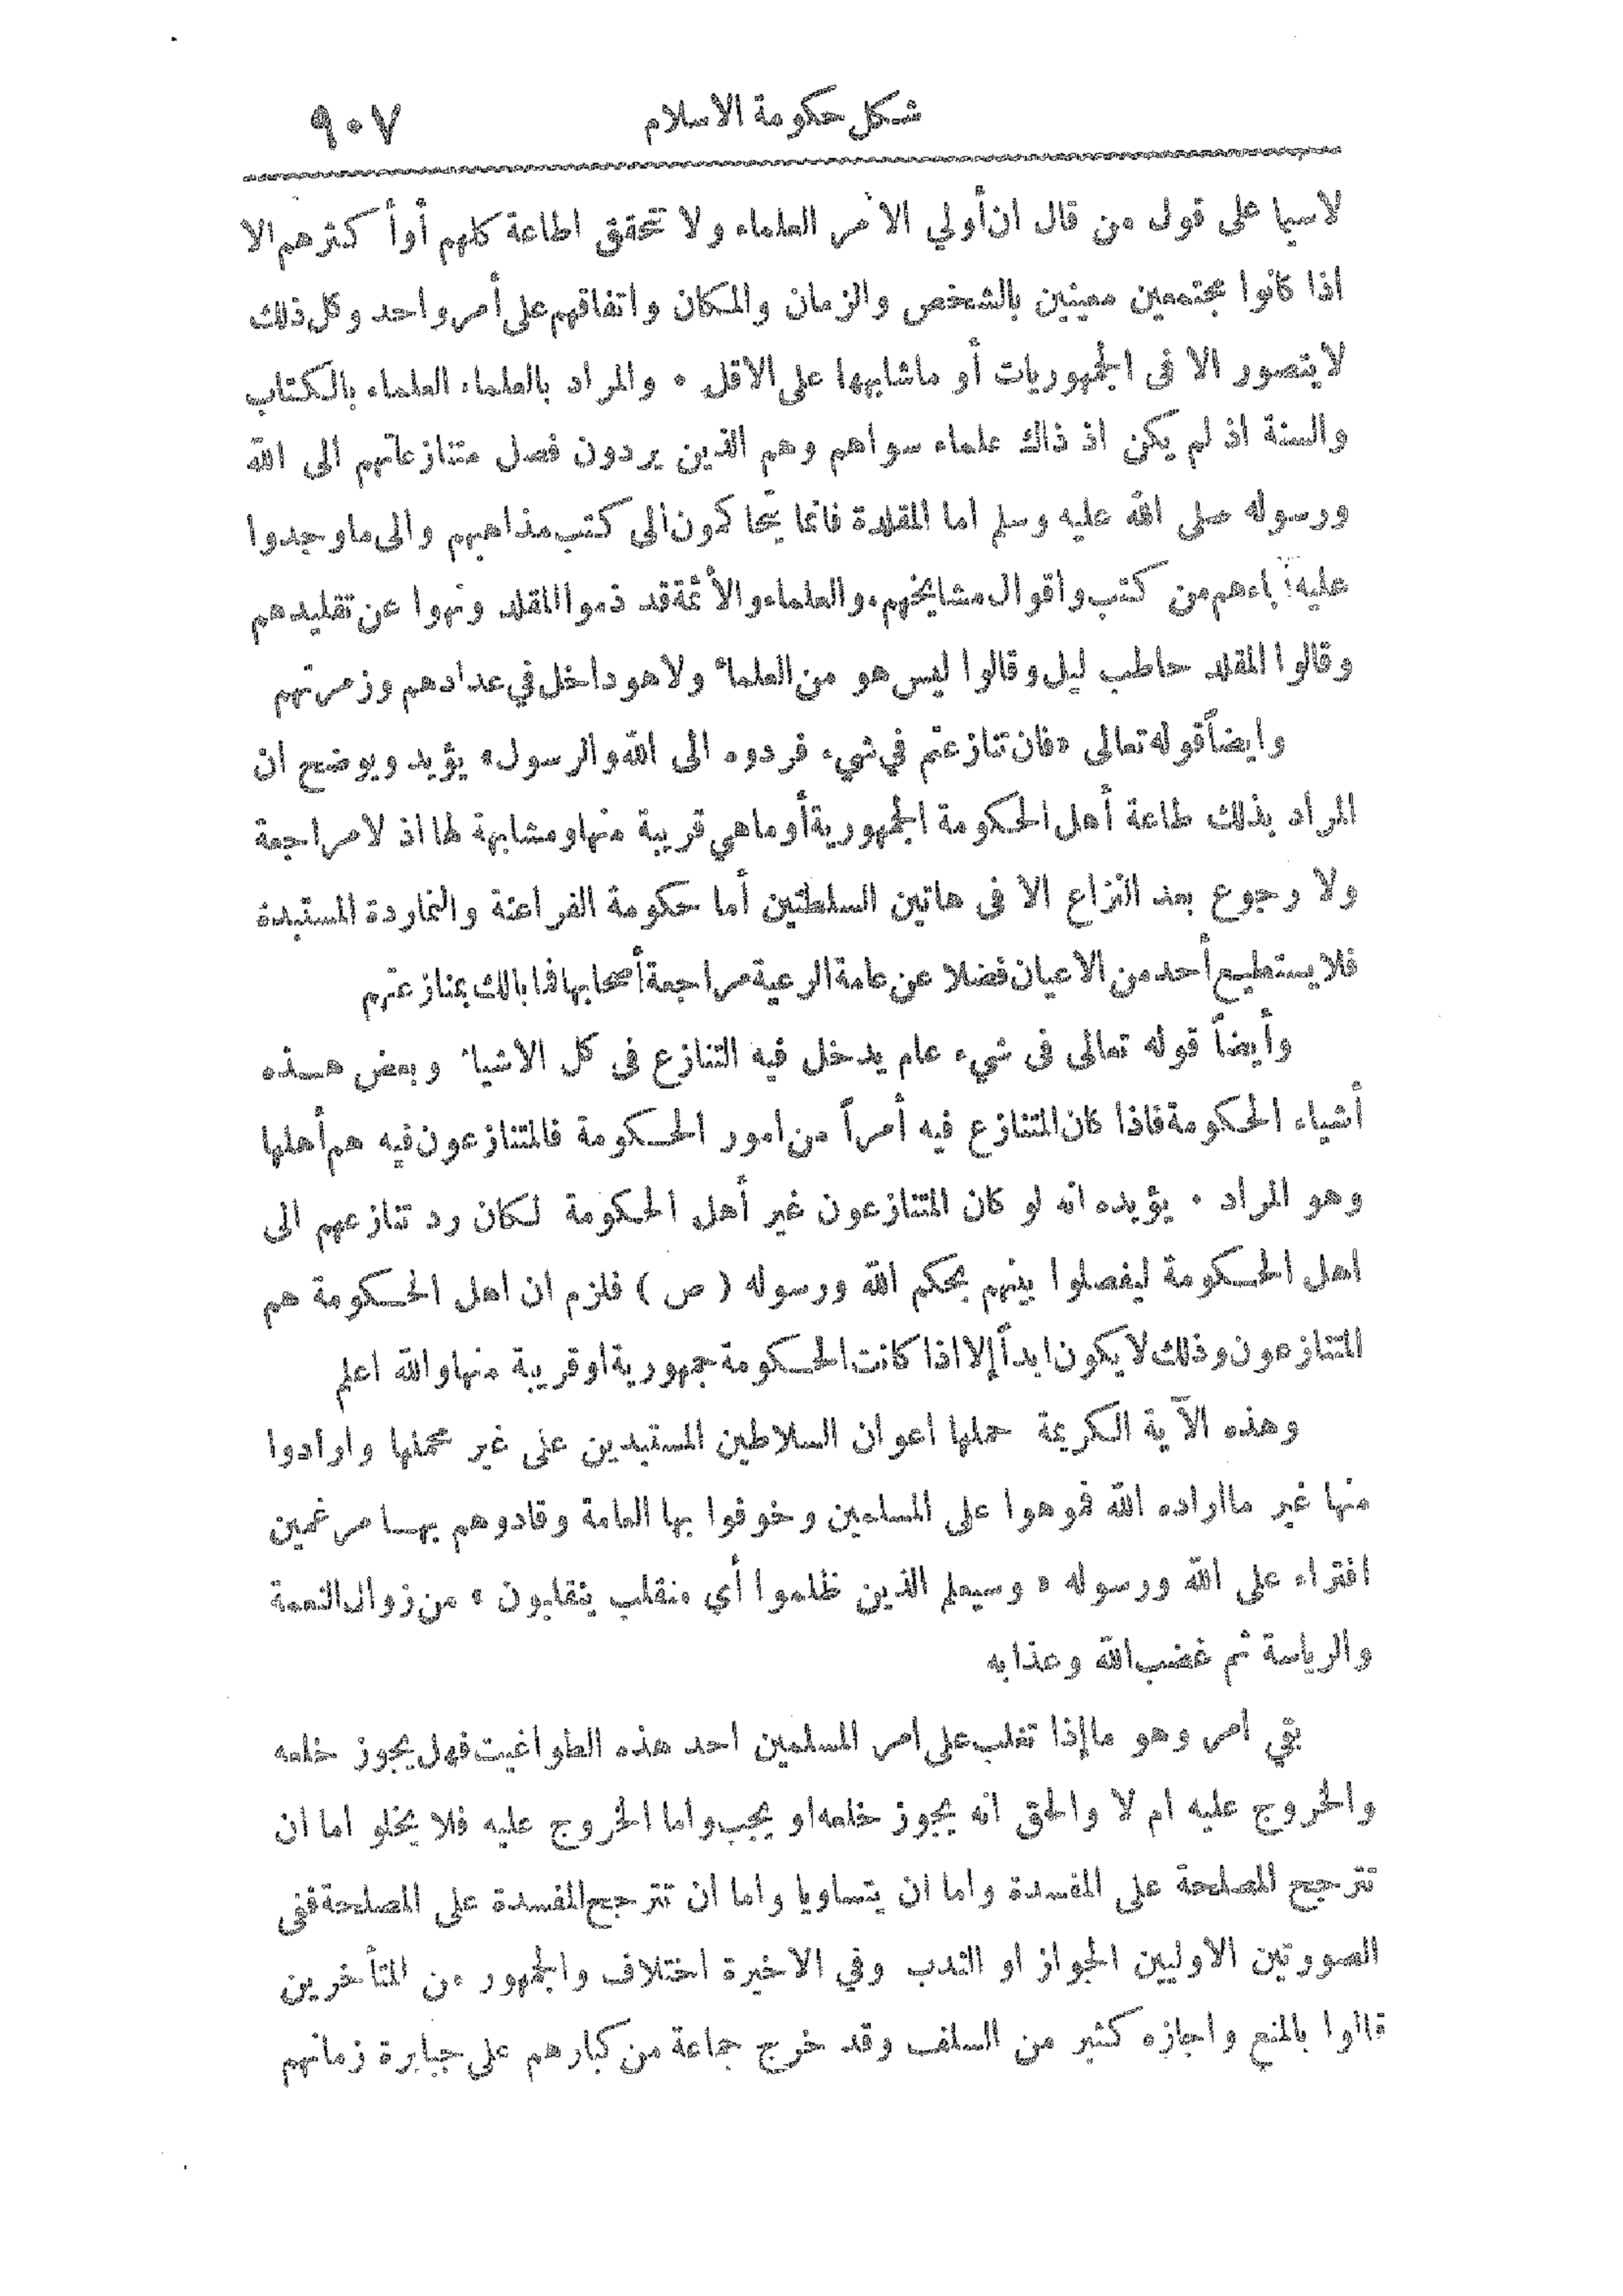 شكل حكومة الاسلام ٩٠٧
لاسيما على قول من قال ان أولي الأمر العلماء ولا تتحقق اطاعة كلهم أو أكثرهم الا
اذا كانوا مجتمعين معينين بالشخص والزمان والمكان واتفاقهم على أمر واحد وكل ذلك
لا يتصور الا في الجمهوريات أو ما شابهها على الاقل . والمراد بالعلماء العلماء بالكتاب
والسنة اذ لم يكن اذ ذاك علماء سواهم وهم الذين يردون فصل متنازعاتهم الى الله
ورسوله صلى الله عليه وسلم اما المقلدة فانما يتحاكمون الى كتب مذاهبهم والى ما وجدوا
عليه آباءهم من كتب واقوال مشايخهم، والعلماء والأئمة قد ذموا المقلد ونهوا عن تقليدهم
وقالوا المقلد حاطب ليل وقالوا ليس هو من العلماء ولا هو داخل في عدادهم وزمرتهم
وايضاً قوله تعالى «فان تنازعتم في شيء فردوه الى الله والرسول» يؤيد ويوضح ان
المراد بذلك طاعة أهل الحكومة الجمهورية أو ما هي قريبة منها ومشابهة لها اذ لا مراجعة
ولا رجوع بعد النزاع الا في هاتين السلطتين أما حكومة الفراعنة والنماردة المستبدة
فلا يستطيع أحد من الاعيان فضلا عن عامة الرعية مراجعة أصحابها فما بالك بمنازعتهم
وأيضاً قوله تعالى في شيء عام يدخل فيه التنازع في كل الاشياء وبعض هذه
أشياء الحكومة فاذا كان المتنازع فيه أمراً من امور الحكومة فالمتنازعون فيه هم أهلها
وهو المراد . يؤيده انه لو كان المتنازعون غير أهل الحكومة لكان رد تنازعهم الى
اهل الحكومة ليفصلوا بينهم بحكم الله ورسوله ( ص ) فلزم ان اهل الحكومة هم
المتنازعون وذلك لا يكون ابداً إلا اذا كانت الحكومة جمهورية او قريبة منها والله اعلم
وهذه الآية الكريمة حملها اعوان السلاطين المستبدين على غير محملها وارادوا
منها غير ما اراده الله فموهوا على المسلمين وخوفوا بها العامة وقادوهم بها مرغمين
افتراء على الله ورسوله « وسيعلم الذين ظلموا أي منقلب ينقلبون » من زوال النعمة
والرياسة ثم غضب الله وعذابه
بقي امر وهو ما إذا تغلب على امر المسلمين احد هذه الطواغيت فهل يجوز خلعه
والخروج عليه ام لا والحق انه يجوز خلعه او يجب واما الخروج عليه فلا يخلو اما ان
تترجح المصلحة على المفسدة واما ان يتساويا واما ان تترجح المفسدة على المصلحة ففي
الصورتين الاوليين الجواز او الندب وفي الاخيرة اختلاف والجمهور من المتأخرين
قالوا بالمنع واجازه كثير من السلف وقد خرج جماعة من كبارهم على جبابرة زمانهم